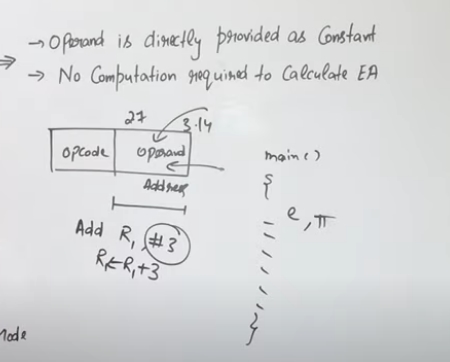 → Operand is directly provided as Constant
⇒ → No Computation required to Calculate EA
27
3.14
opcode
operand
Address
Add R₁, #3
R₁←R₁+3
main()
{
e, π
}
Mode